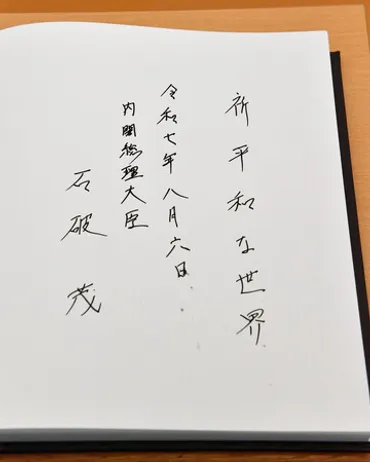 祈平和な世界
令和七年八月六日
内閣総理大臣
石破茂